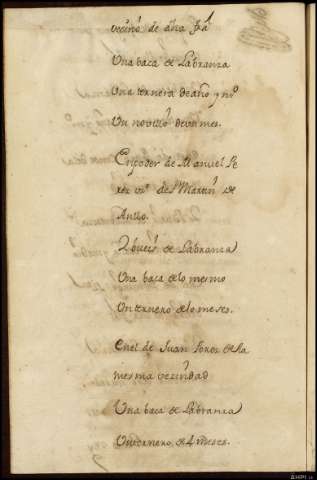 vecino de dha frã
Una baca de Labranza
Una ternera de año y mº
Un novillo de un mes.
En poder de Manuel Pe
rez vº de S Martin de
Anllo.
2 bueis de Labranza
Una baca de lo mesmo
Un ternero de 10 meses.
En el de Juan Perez de la
mesma vecindad
Una baca de Labranza
Un ternero de 4 meses.